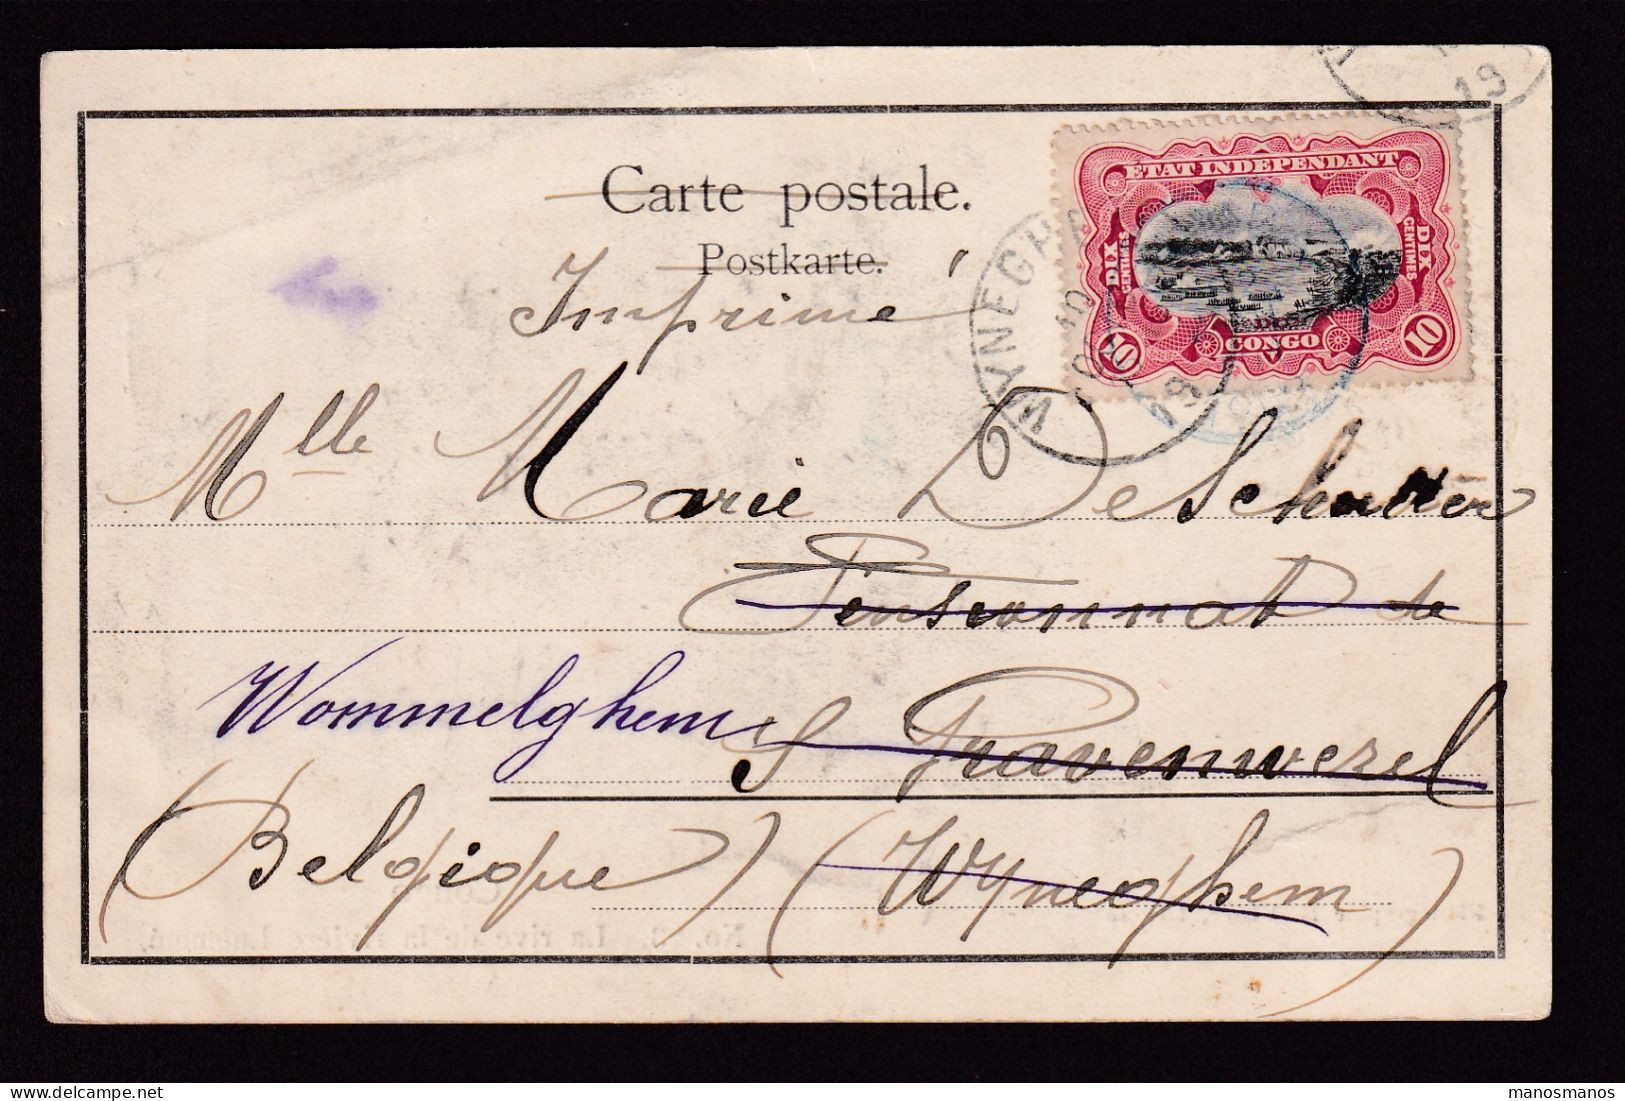 19
Carte postale.
Postkarte.
Imprimé
ETAT INDEPENDANT
DIX CENTIMES
DIX CENTIMES
DU
CONGO
10
10
WYNEGH
10
8
Mlle Marie De Schutter
Pensionnat de
Wommelghem S' Gravenwezel
(Belgique) (Wyneghem)
No. 3. La rive de la rivière
manosmanos